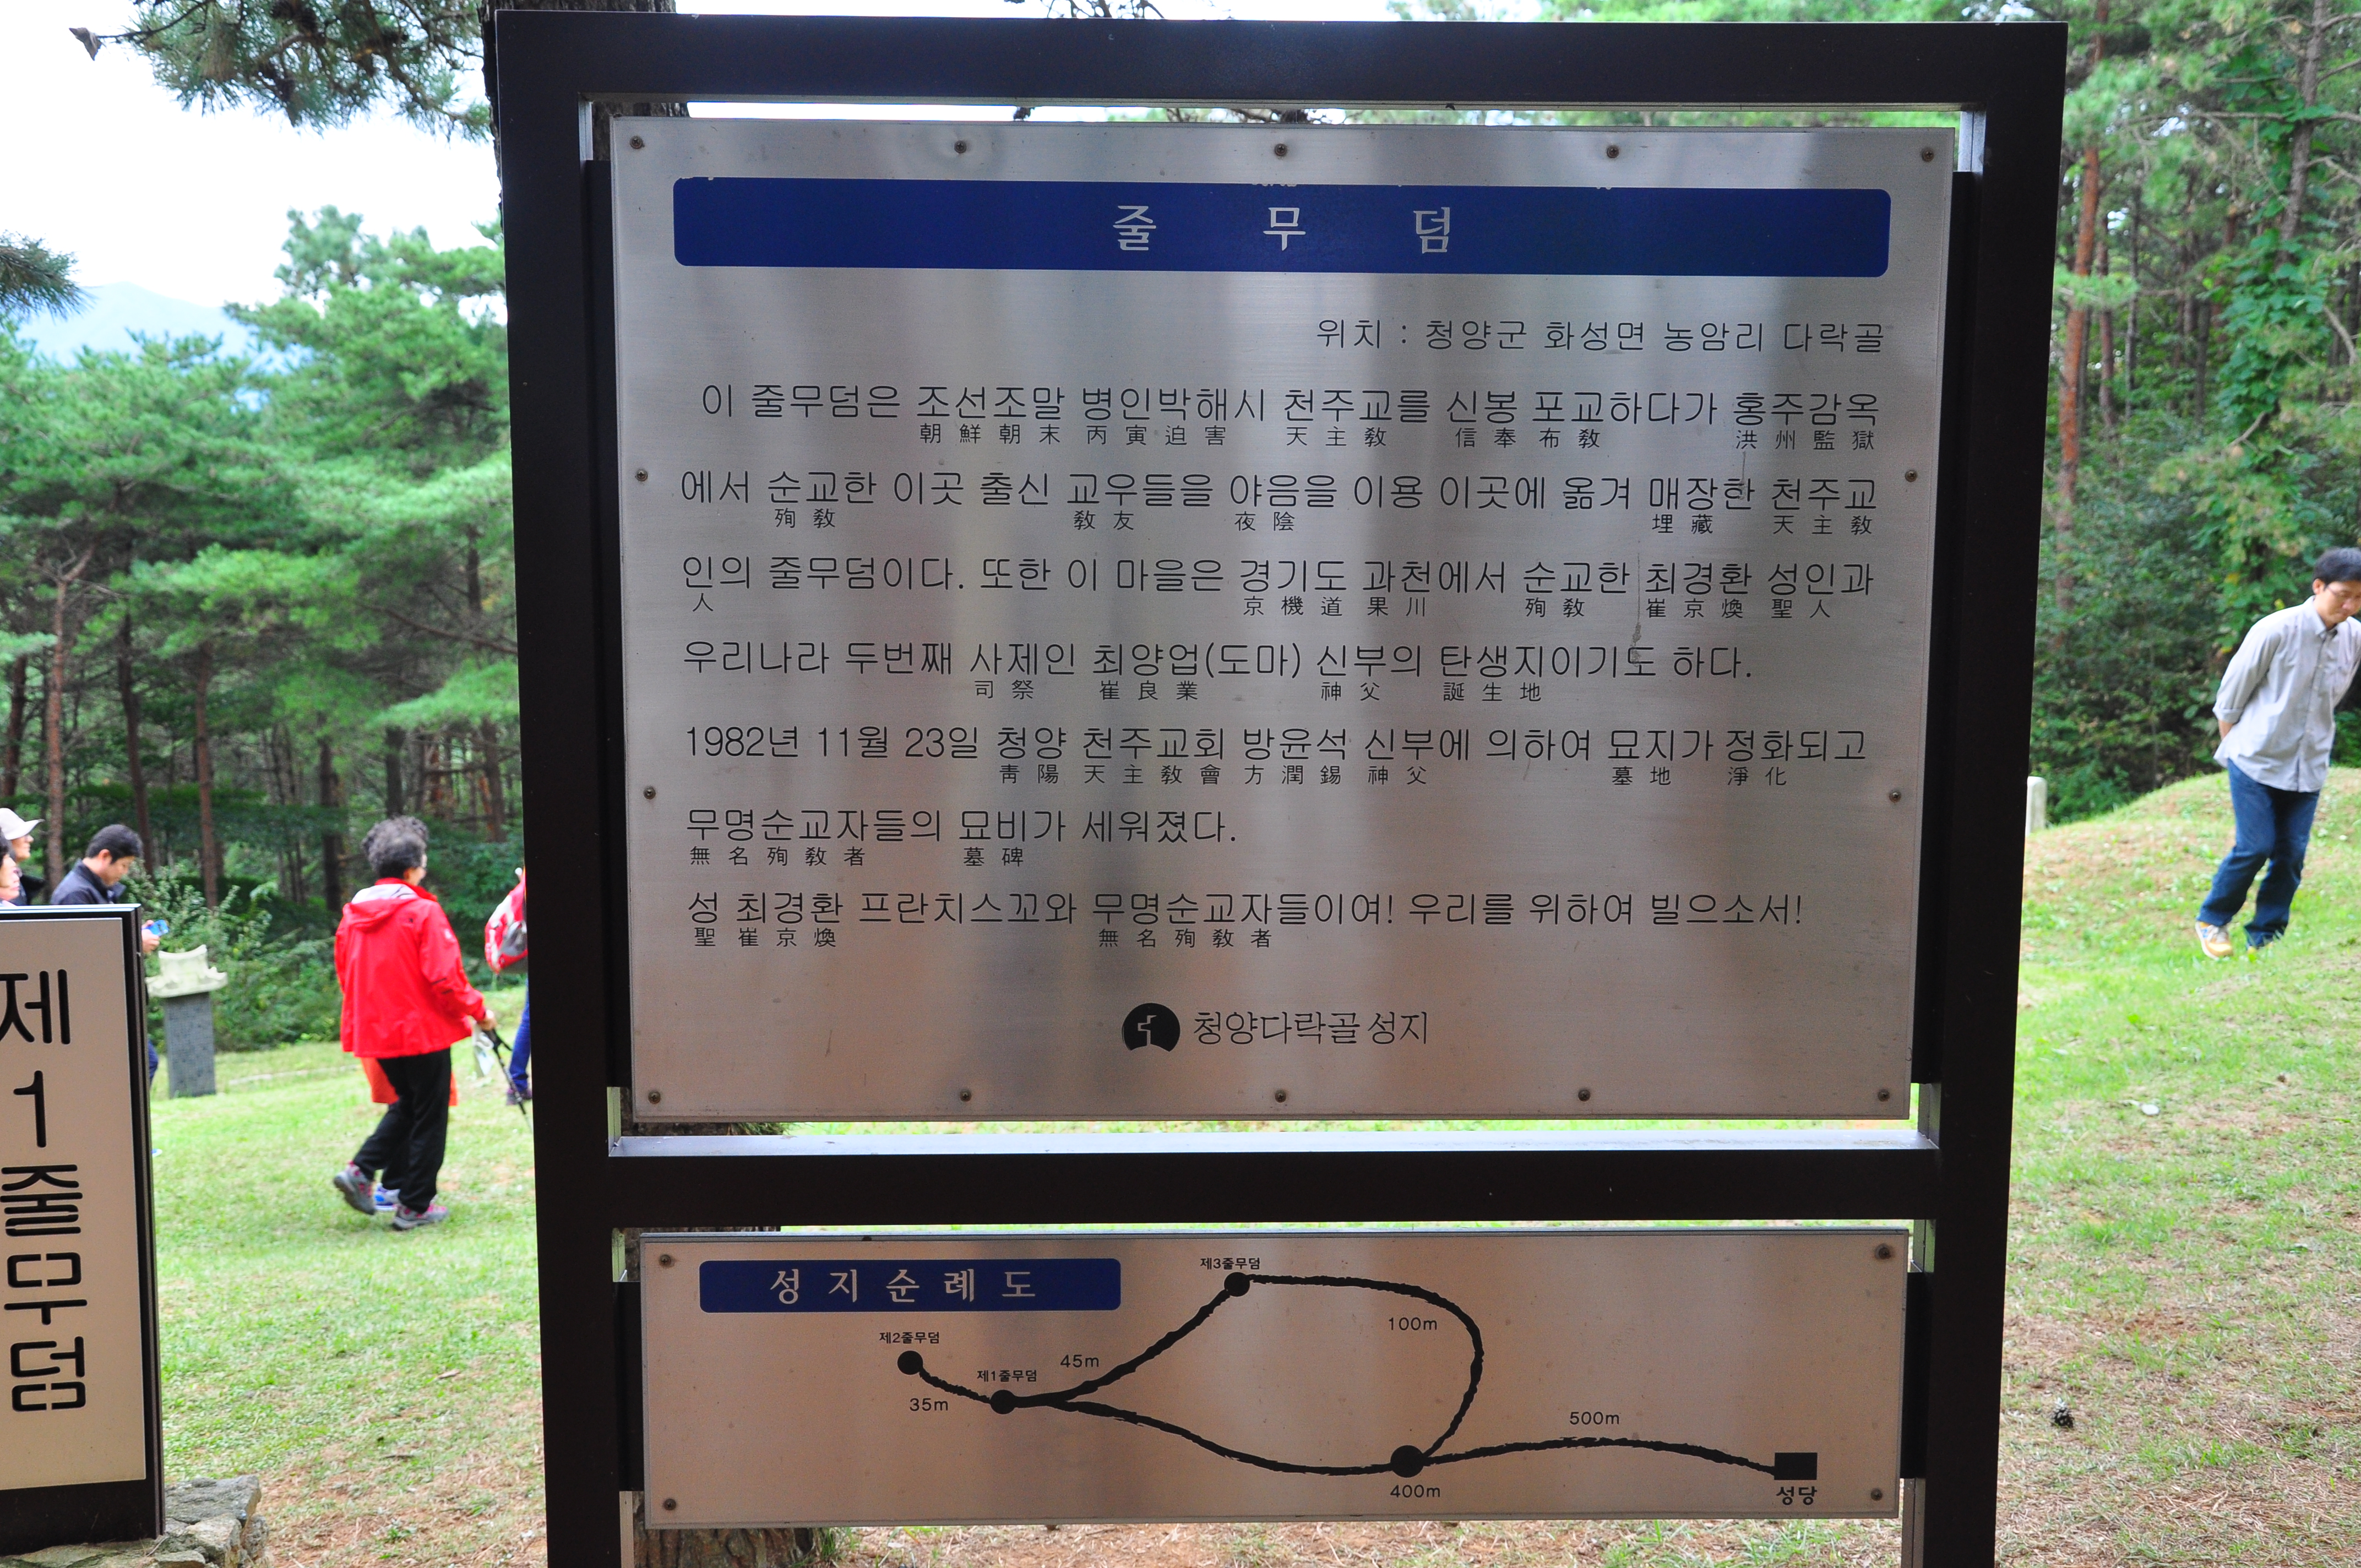 줄 무 덤
위치 : 청양군 화성면 농암리 다락골
이 줄무덤은 조선조말 병인박해시 천주교를 신봉 포교하다가 홍주감옥
朝鮮朝末 丙寅迫害 天主敎 信奉 布敎 洪州監獄
에서 순교한 이곳 출신 교우들을 야음을 이용 이곳에 옮겨 매장한 천주교
殉敎 敎友 夜陰 埋藏 天主敎
인의 줄무덤이다. 또한 이 마을은 경기도 과천에서 순교한 최경환 성인과
人 京機道 果川 殉敎 崔京煥 聖人
우리나라 두번째 사제인 최양업(도마) 신부의 탄생지이기도 하다.
司祭 崔良業 神父 誕生地
1982년 11월 23일 청양 천주교회 방윤석 신부에 의하여 묘지가 정화되고
靑陽 天主敎會 方潤錫 神父 墓地 淨化
무명순교자들의 묘비가 세워졌다.
無名殉敎者 墓碑
성 최경환 프란치스꼬와 무명순교자들이여! 우리를 위하여 빌으소서!
聖 崔京煥 無名殉敎者
청양다락골 성지
제1줄무덤
성지순례도
제3줄무덤
100m
제2줄무덤
45m
제1줄무덤
35m
500m
400m
성당